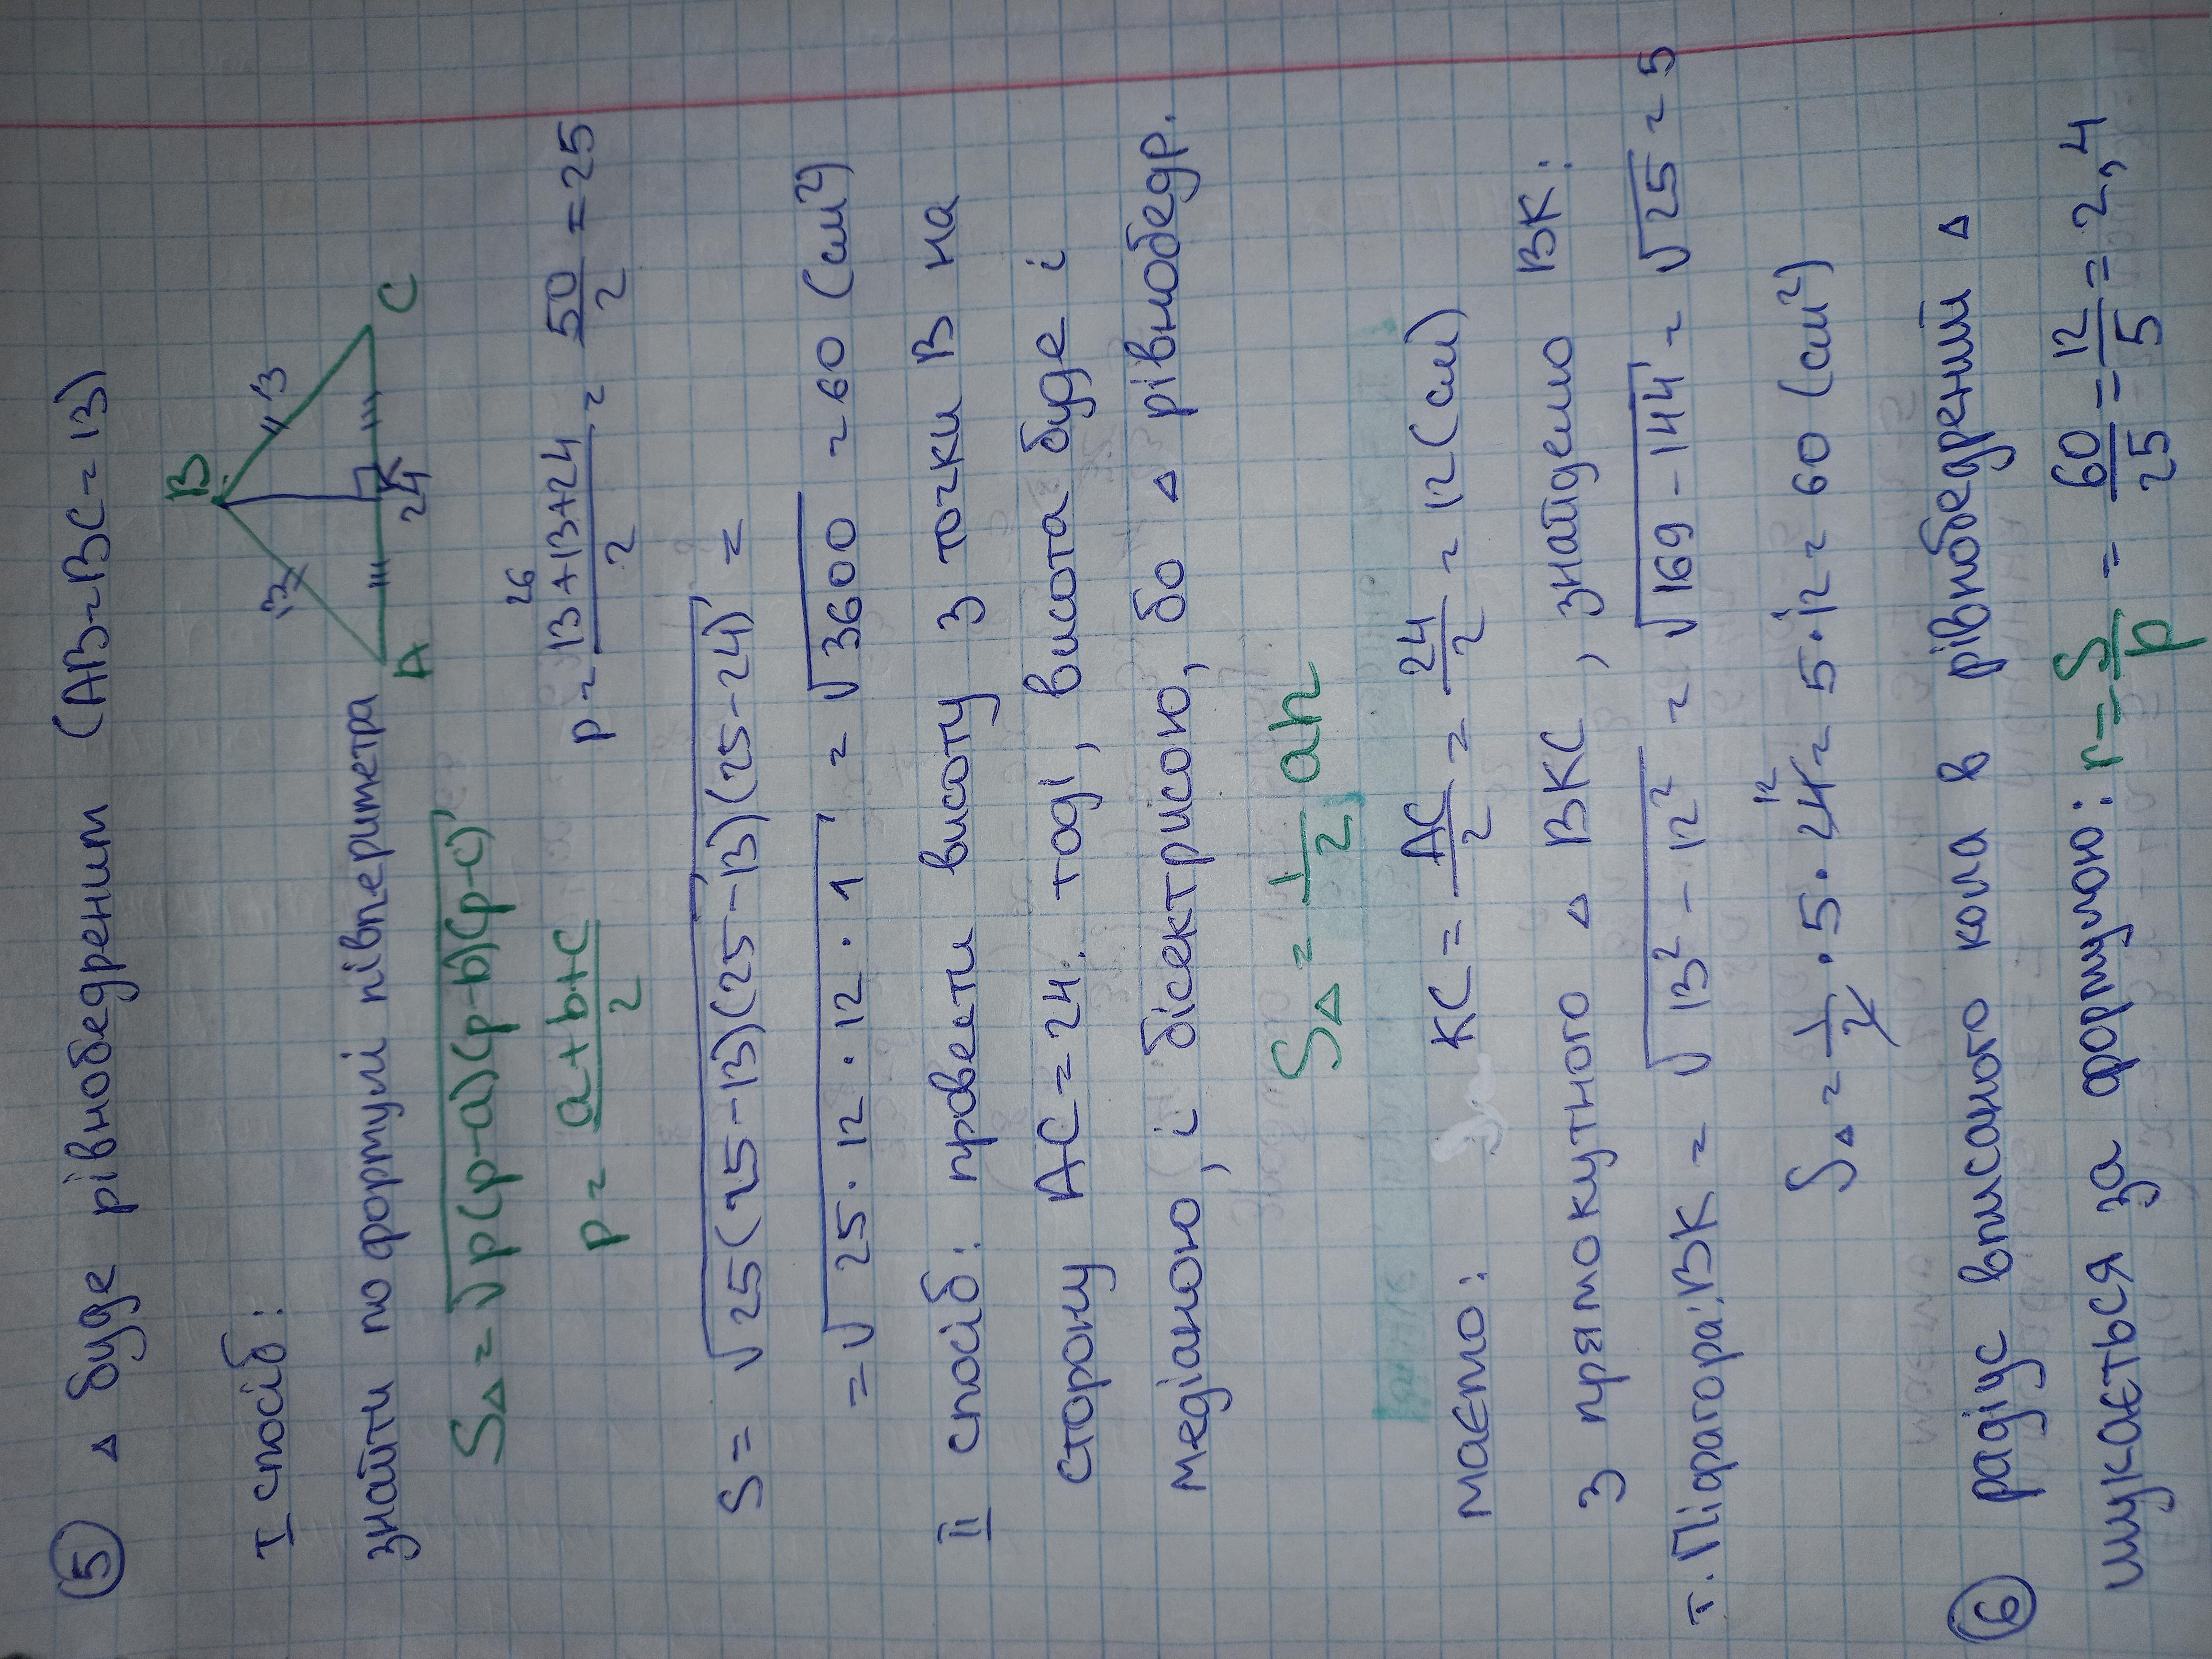 5 △ буде рівнобедреним (AB=BC=13)
I спосіб:
B
13
13
A
K
24
C
знайти по формулі півпериметра
S△ = √p(p-a)(p-b)(p-c)
p = a+b+c/2
26
p = 13+13+24/2 = 50/2 = 25
S = √25(25-13)(25-13)(25-24) =
= √25·12·12·1 = √3600 = 60 (см²)
II спосіб: провести висоту з точки B на
сторону AC=24. тоді, висота буде і
медіаною, і бісектрисою, бо △ рівнобедр.
S△ = 1/2 ah
маємо: KC = AC/2 = 24/2 = 12 (см)
З прямокутного △ BKC, знайдемо BK:
т. Піфагора: BK = √13² - 12² = √169 - 144 = √25 = 5
12
S△ = 1/2 · 5 · 24 = 5·12 = 60 (см²)
6 радіус вписаного кола в рівнобедрений △
шукається за формулою: r = S/p = 60/25 = 12/5 = 2,4